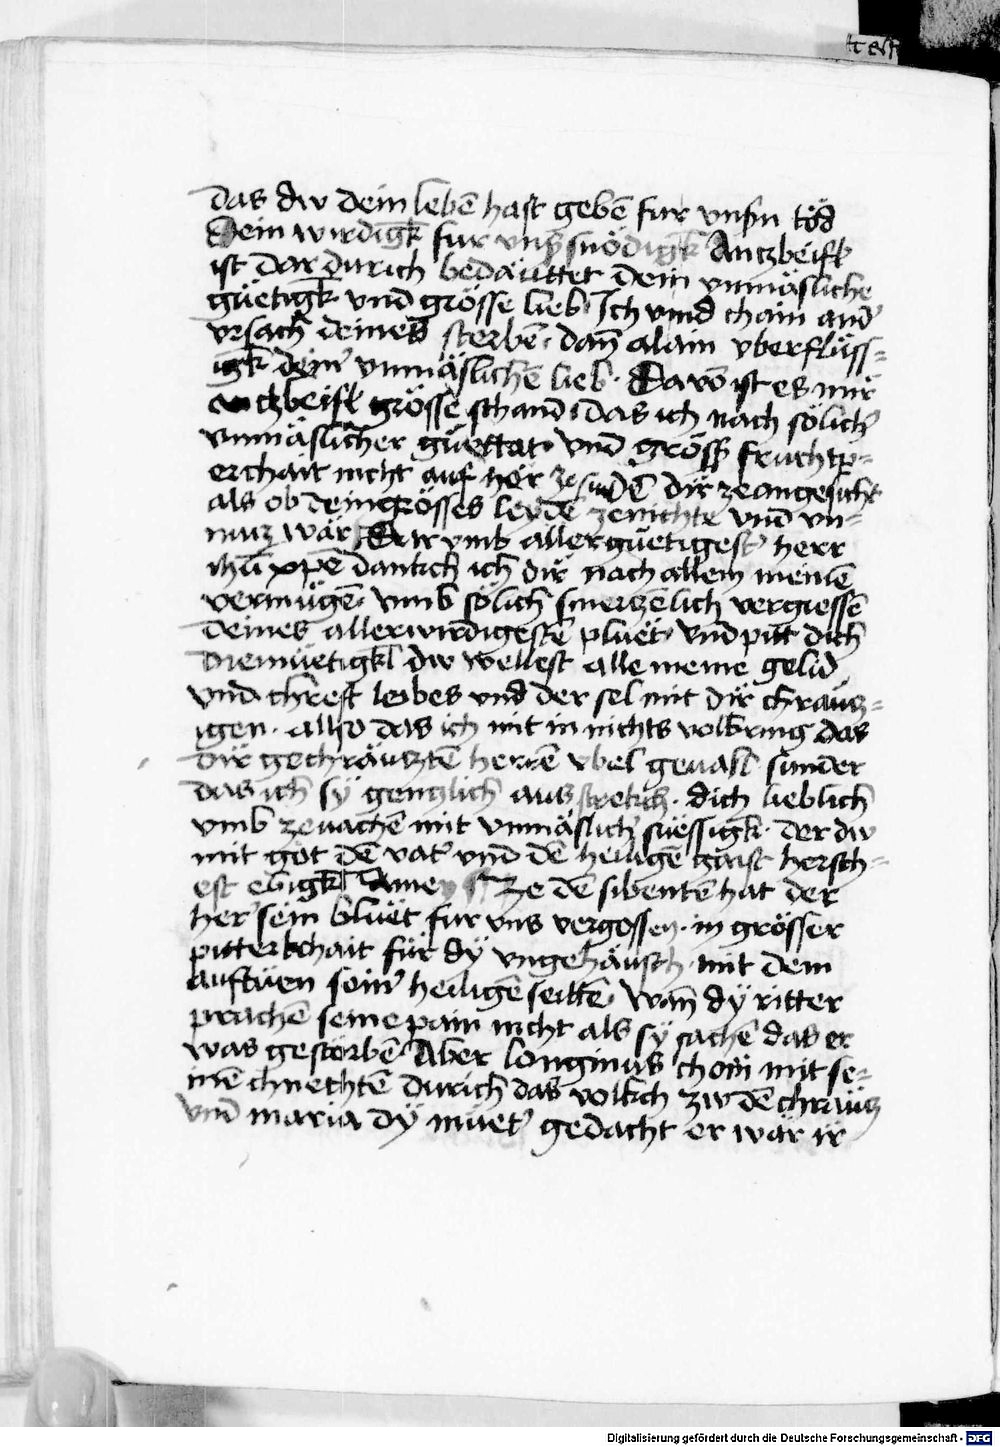 das dw dein lebē hast gebē fur vnsn töd
Dein wirdigk̄ fur vnsͥ snödigk̄ An tzbeifl
ist dar durich bedäuttet dein vnmäsliche
güetigk̄ vnd grösse lieb Ich vind chain and̾
vrsach deines sterbē · dan̄ alain vberflüss=
igk̄ dein̾ vnmäslichē lieb · Davō ist es mir
an tzbeifl grösse schand das ich nach sölich̾
vnmäslicher güettat · vnd gröss̾ fruchtp=
erchait nicht auf hör ze sundē dir ze angesicht
als ob dein grösses leydē ze nichte vnd vn=
nucz wär Dar vmb aller güetigest̾ herr
ihū xpē dankch ich dir nach allem meinē
vermügē · vmb sölich smerczenlich vergiessē
deines allerwirdigestē pluet · vnd pitt dich
diemüetigkl̄ dw wellest alle meine gelid
vnd chreft leibes vnd der sel mit dir chräucz=
igen · allso das ich mit in nichts volbring das
dir gechräucztē herrē vbel geuall sunder
das ich sy genczlich aus strekch · dich lieblich
vmb ze uachē mit vnmäslich̾ süessigk̄ · der dw
mit got dē vat̾ vnd dē heiligē gaist hersch=
est ebigkl̄ Amen Ze dē sibentē hat der
her sein bluet fur vns vergossen · in grösser
pitterkchait für dy vngehäusch · mit dem
auftuen sein̾ heiligē seittē · wan̄ dy ritter
prachē seine pain nicht als sy sachē das er
was gestorbē Aber longinus chom mit se=
inē chnechtē durich das volkch zw dē chräucz
vnd maria dy muet̾ gedacht er wär ir
Digitalisierung gefördert durch die Deutsche Forschungsgemeinschaft - DFG